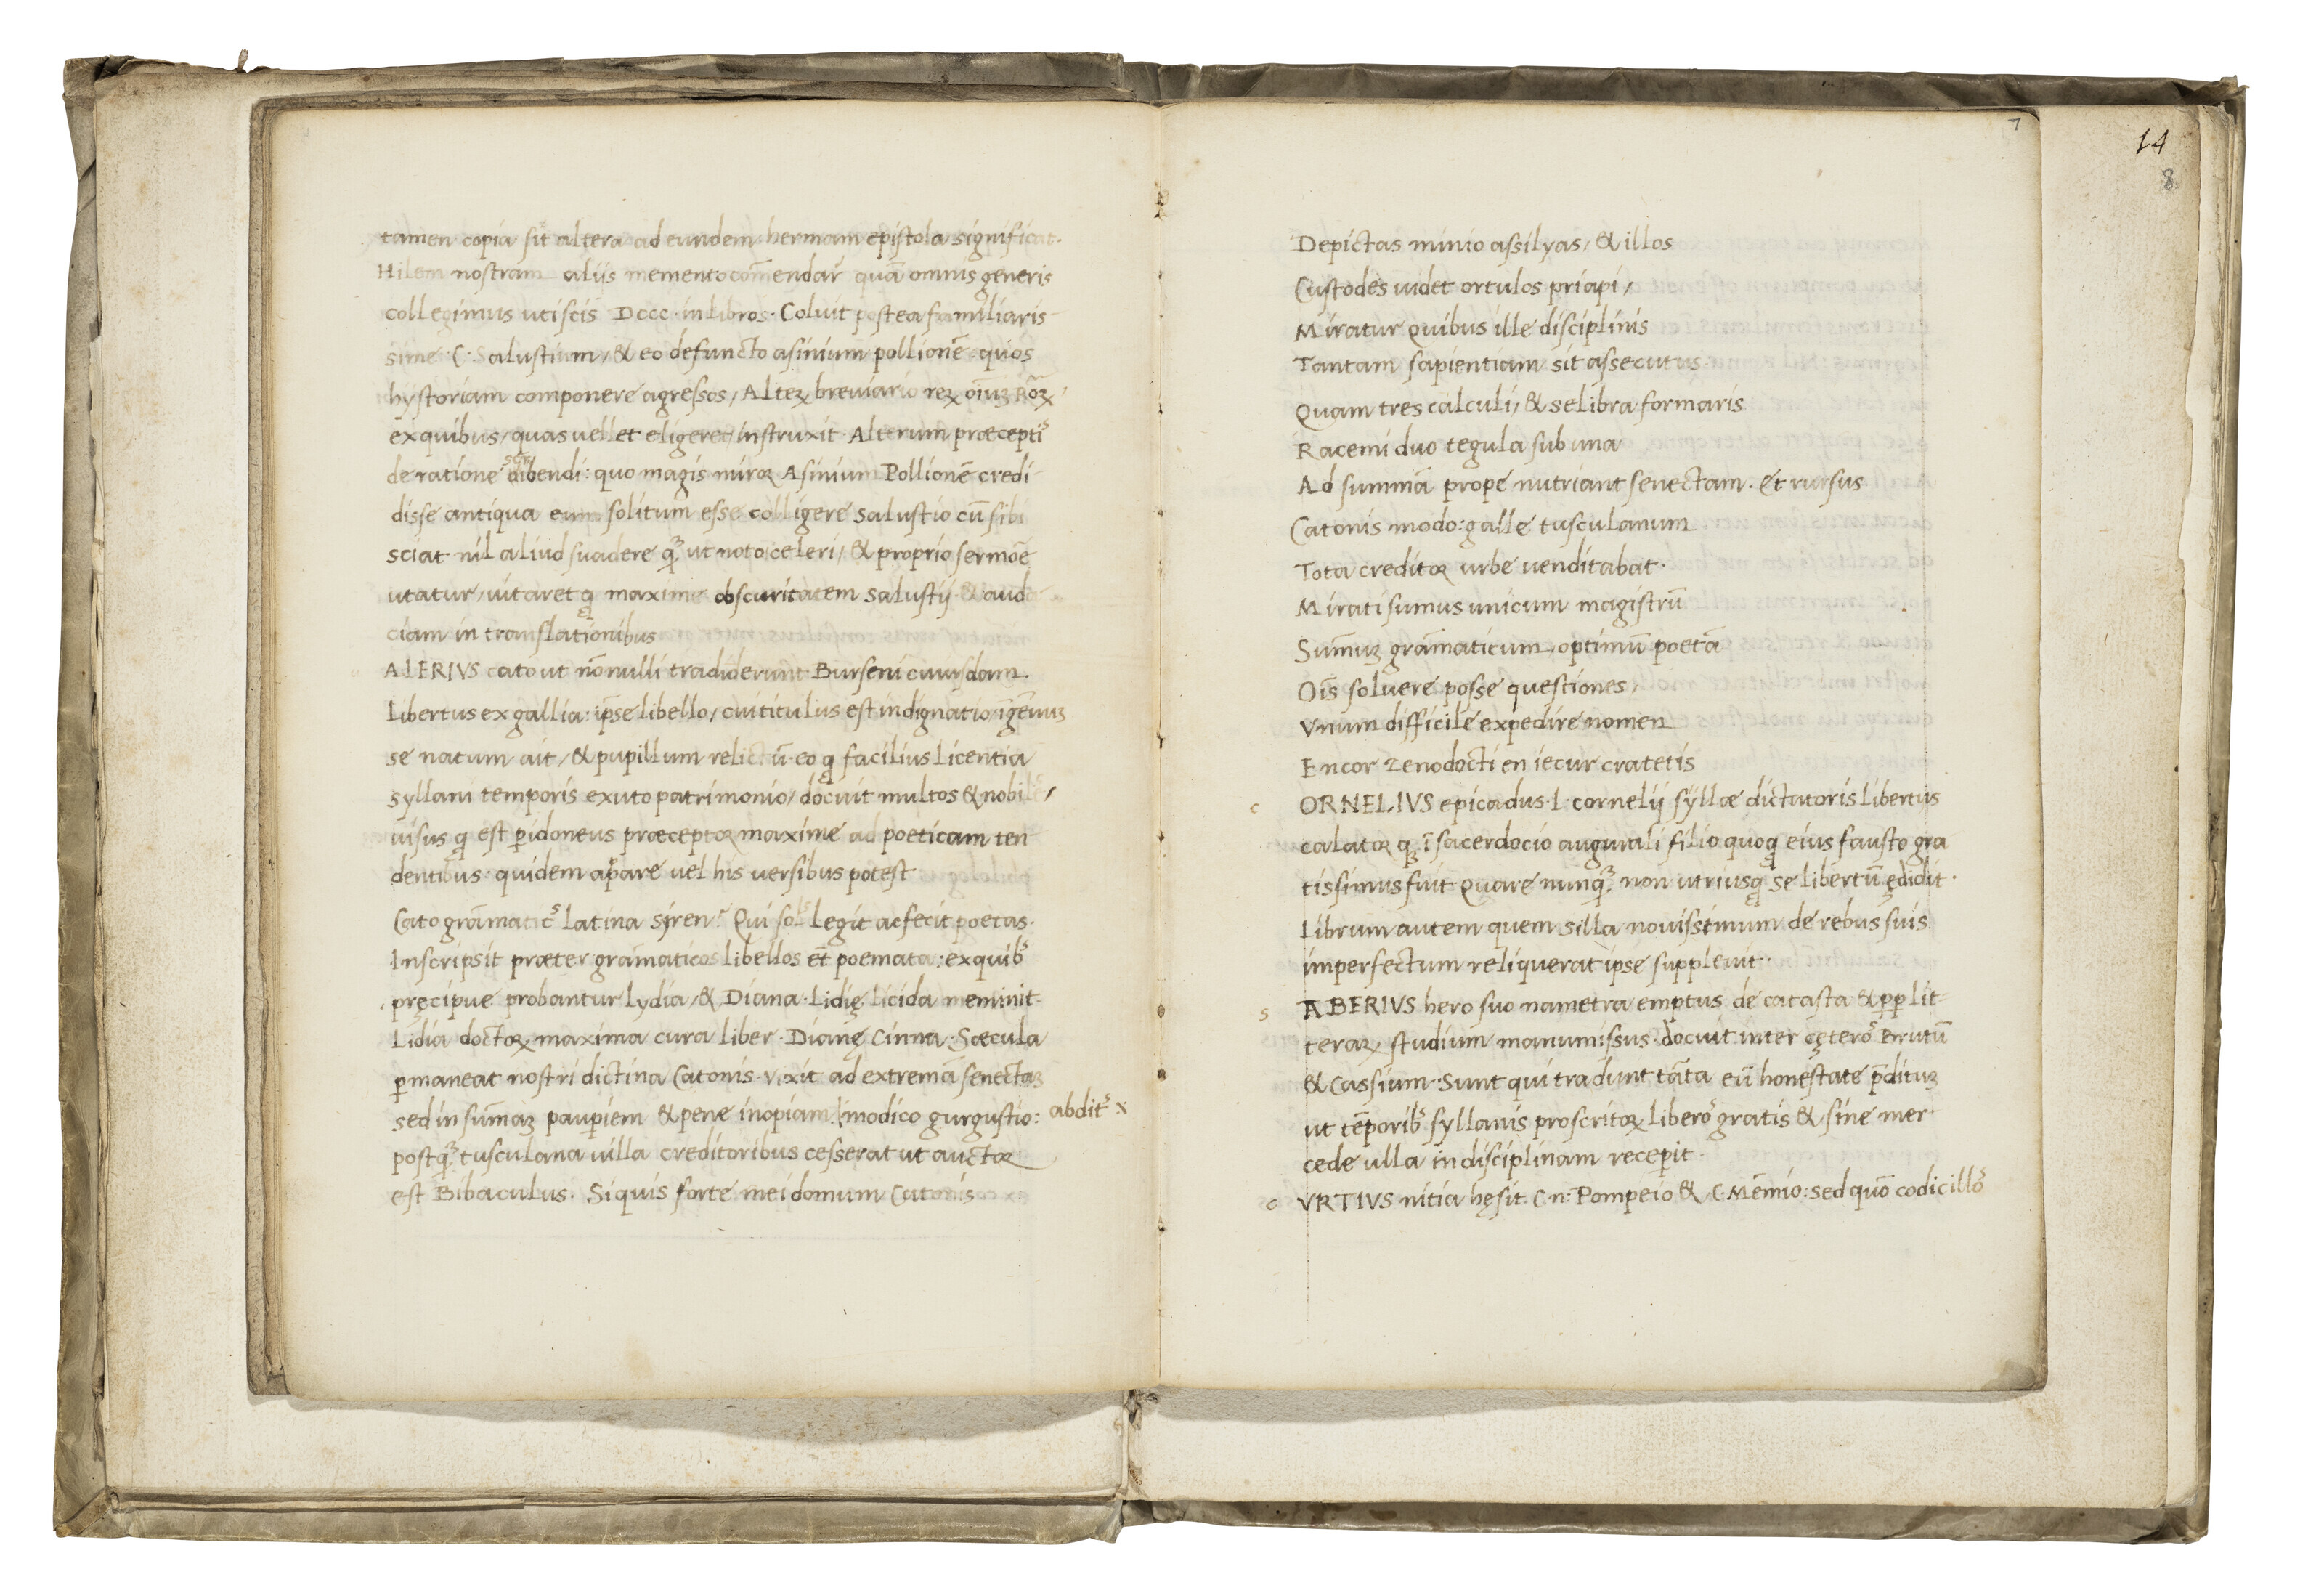 tamen copia sit altera ad eundem hermam epistola significat.
Hilem nostram aliis memento com̄endar̄ quā omnis generis
collegimus utiscis Dccc. in libros. Coluit postea familiaris
sime C. Salustium, & eo defuncto asinium pollionē. quos
hystoriam componere agressos, Alteꝝ breviario reꝝ oīuʒ Rōꝝ
ex quibus, quas vellet eligeret, instruxit. Alterum præceptis
de ratione scribendi: quo magis miror Asinium Pollionē credi
disse antiqua eum solitum esse colligere salustio cū sibi
sciat nil aliud suadere qʒ ut noto celeri, & proprio sermōe
utatur, vitaretqꝫ maxime obscuritatem salustij & auda
ciam in translationibus
ALERIVS cato ut nōnulli tradiderunt Burseni cuiusdam.
Libertus ex gallia: ipse libello, cui titulus est indignatio īgenuuʒ
se natum ait, & pupillum relictū. eo qꝫ facilius licentia
syllani temporis exuto patrimonio, docuit multos & nobiles,
visus qꝫ est ꝑidoneus præceptor maxime ad poeticam ten
dentibus. quidem apparē vel his versibus potest
Cato grāmaticˢ latina syren. Qui solˢ legit ac fecit poetas.
Inscripsit præter grāmaticos libellos ēt poemata: ex quibˢ
pręcipue probantur Lydia, & Diana. Lidię Licida meminit.
Lidia doctoꝝ maxima cura liber. Dianę Cinna: Sæcula
ꝑmaneat nostri dictina Catonis. Vixit ad extremā senectaʒ
sed in sum̄aʒ pauꝑiem & pene inopiam. modico gurgustio: abditˢ x
postqʒ tusculana villa creditoribus cesserat ut auctor
est Bibaculus. Si quis forte mei domum Catonis
7
14
8
Depictas minio assilyas, & illos
Custodes videt ortulos priapi,
Miratur quibus ille disciplinis
Tantam sapientiam sit assecutus
Quam tres calculi, & selibra formaris
Racemi duo tegula sub una
Ad summā prope nutriant senectam. Et rursus
Catonis modo: galle tusculanum
Tota creditor urbe venditabat.
Mirati sumus unicum magistrū
Sum̄uʒ grāmaticum, optimū poetā
Oīs solvere posse questiones,
Vnum difficile expedire nomen
En cor zenodocti en iecur crateiis
c ORNELIVS epicadus. L. cornelij syllæ dictatoris libertus
calator qꝫ ī sacerdocio augurali filio quoqꝫ eius fausto gra
tissimus fuit Quare nunqʒ non utriusqꝫ se libertū ędidit.
Librum autem quem silla novissimum de rebus suis
imperfectum reliquerat ipse supplevit.
s TABERIVS hero suo nametra emptus de catasta & ꝓꝑ lit
teraꝝ studium manumissus. docuit inter cęteroˢ Brutū
& Cassium. Sunt qui tradunt tāta eū honestate p̄dituʒ
ut tēporibˢ syllanis proscritoꝝ liberoˢ gratis & sine mer
cede ulla in disciplinam recepit.
c VRTIVS nitia hęsit Cn: Pompeio & C. Mēmio: sed quō codicilloˢ